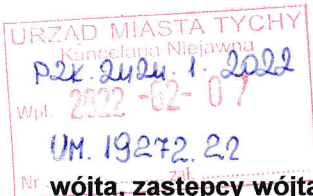 URZĄD MIASTA TYCHY
Kancelaria Niejawna
PZK. 2424. 1. 2022
Wpł. 2022 -02- 07
UM. 19272.22
Nr ........ zał. ........
wójta, zastępcy wójta